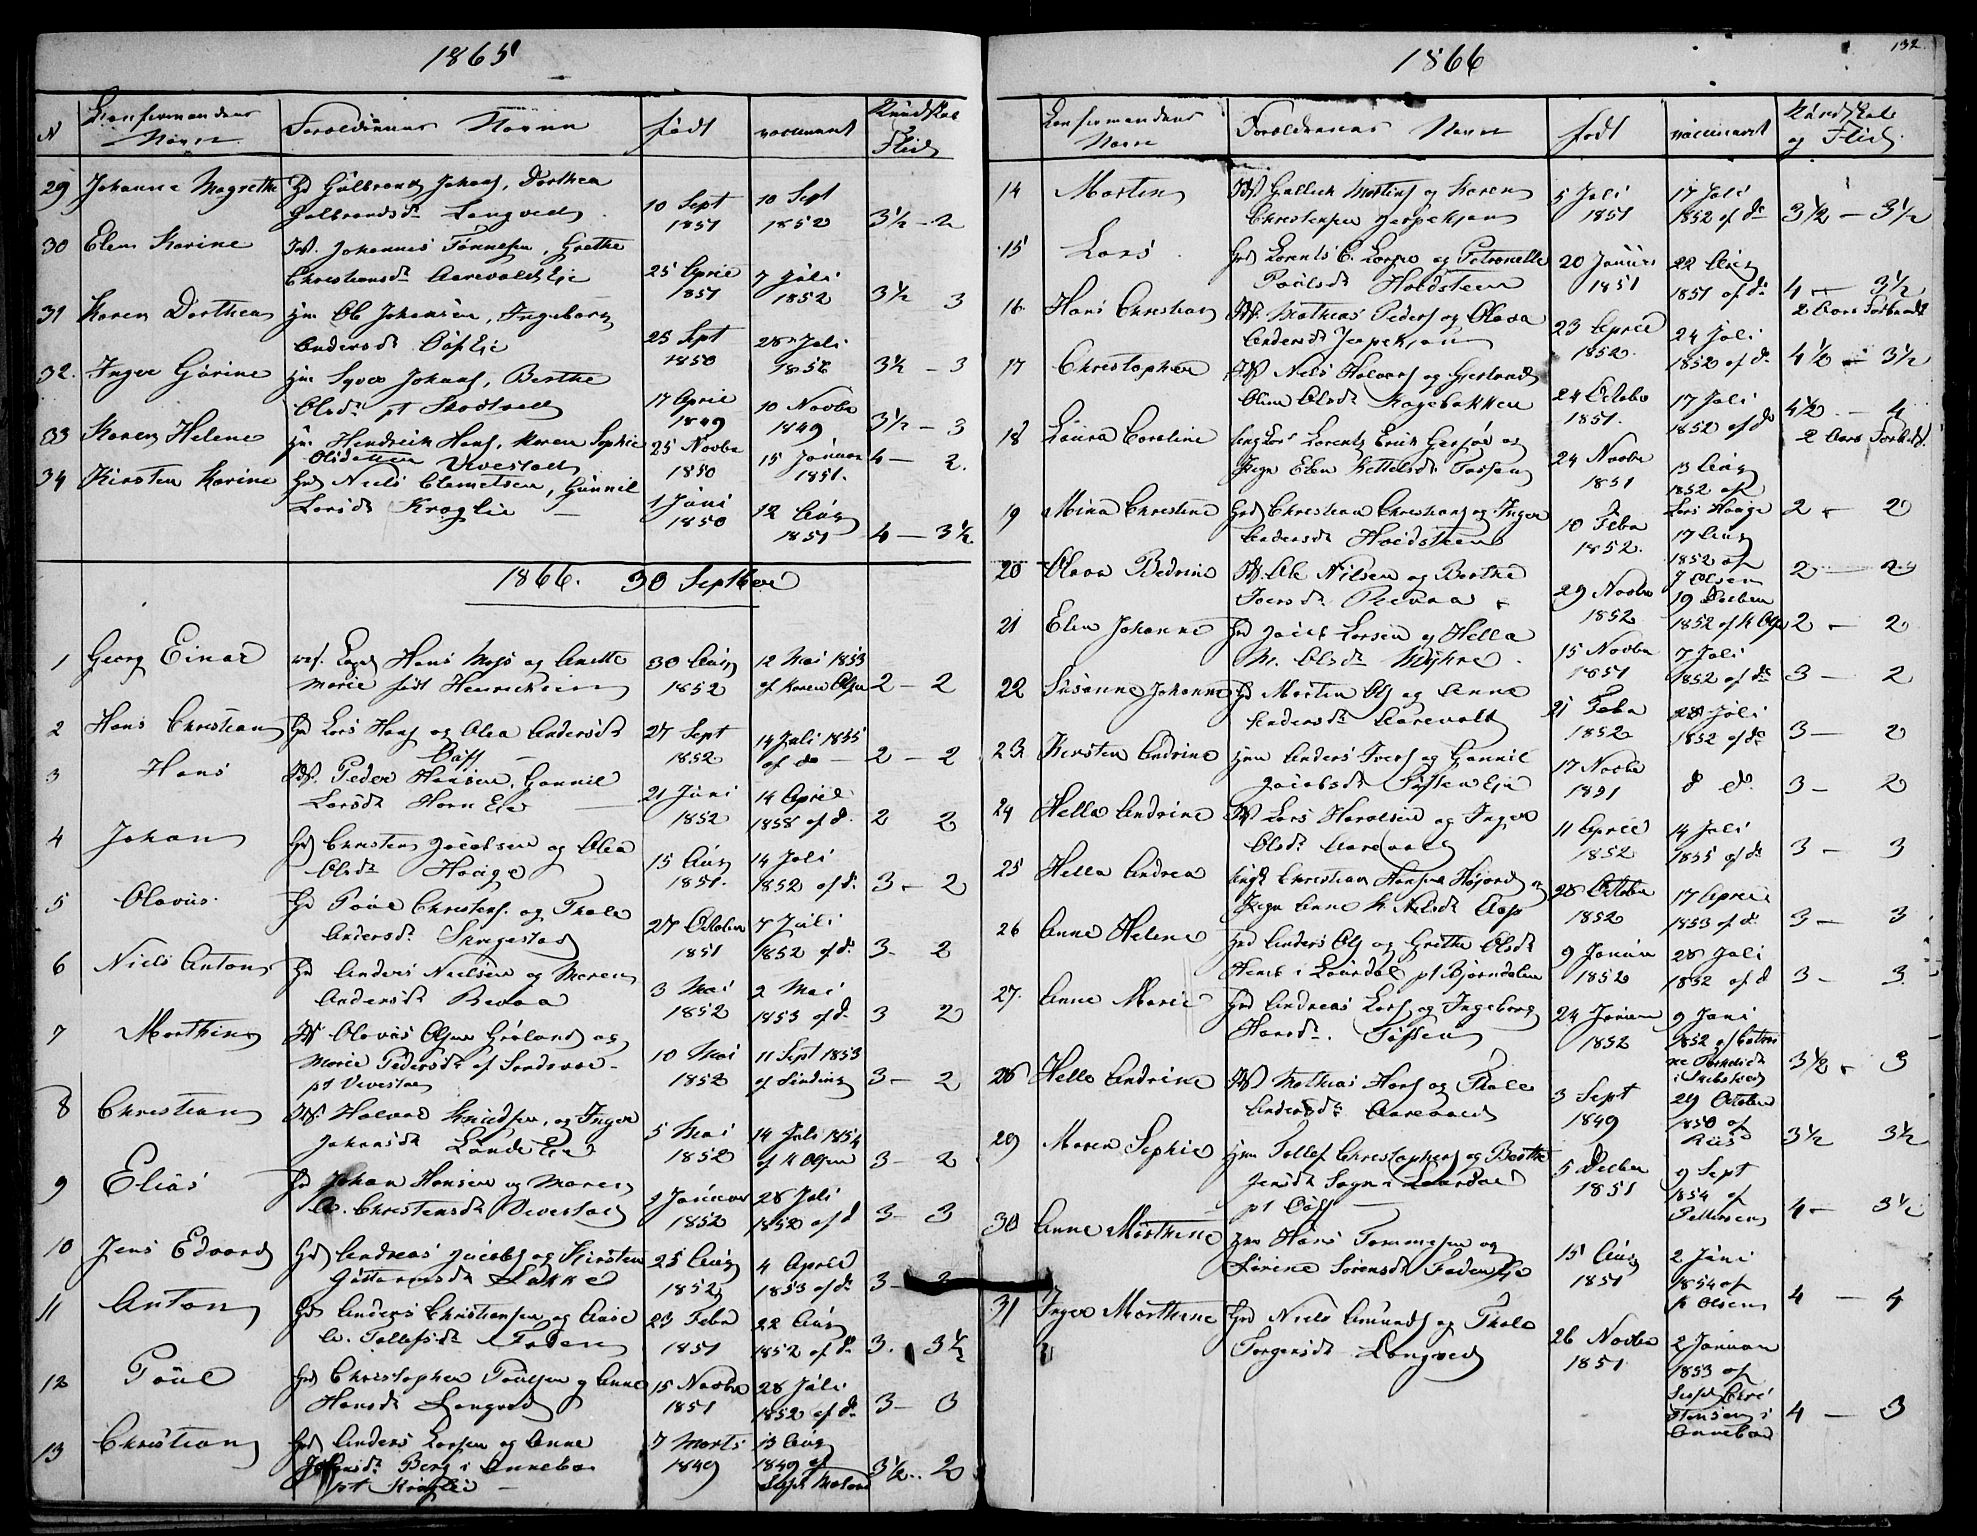 1865
N Confirmandens Navn Forældrenes Navne født vaccineret Kundskab Flid
29 Johanne Magrethe Gd Gulbrand Johans, Dorthea
Gulbrandsdr Langved 10 Sept 1851 10 Sept 1852 3½ - 2
30 Elen Karine Johannes Tønnesen, Grethe
Christensdr Aarevaldt Eje 25 April 1851 7 Juli 1852 3½ 3
31 Karen Dorthea hjm Ole Johansen, Ingeborg
Andersdr Eje 25 Sept 1850 28 Juli 1852 3½ - 3
32. Inger Gurine hjm Syver Johans, Berthe
Olsdr pt 17 April 1849 10 Novbr 1849 3½ - 3
33 Karen Helene hjm Hendrich Hans, Karen Sophie
Olsdatter Vivestad 25 Novbr 1850 15 Januar 1851. 4 - 2.
34 Kirsten Karine Gd Niels Clemetsen, Gunnil
Larsdr Kraglie 1 Juni 1850 12 Aug 1851 4 - 3½.
1866. 30 Septber
1 Georg Einar Hans Moss og Anette
Marie født Henrichsen 30 Aug 1852 12 Mai 1853 af Karen Olsen 2 - 2
2 Hans Christian Gd Lars Hans og Olea Andersdr
27 Sept 1852 14 Juli 1855 af do 2 - 2
3 Hans Peder Hansen, Gunnil
Larsdr Horn Eje 21 Juni 1852 14 April 1858 af do 2 2
4 Johan Gd Christen Jacobsen og Olea
Olsdr Hauge 15 Aug 1851. 14 Juli 1852 af do 3 - 2
5 Olavus. Gd Poul Christens. og Thale
Andersdr 27 October 1851 7 Juli 1852 af do 3 - 2
6 Niels Anton Gd Anders Nielsen og Maren
Andersdr Revaa 3 Mai 1852 2 Mai 1853 af do 3 2
7 Marthin Olavus Olsen Grøland og
Marie Pedersdr af
pt Vivestad 10 Mai 1852 11 Sept 1853 af Sinding 3 - 2
8 Christian Halvor Knudsen, og Inger
Johansdr Lønde Eje 5 Mai 1852 14 Juli 1854 af K Olsen 3 - 2
9 Elias Gd Johan Hansen og Maren
A. Christensdr Vivestad 9 Januar 1852 28 Juli 1852 af d 3 - 3
10 Jens Edvard Gd Andreas Jacobs og Kirsten
Guttormsdr Løkke 25 Aug 1852 4 April 1853 af do 3 - 2
11 Anton Gd Anders Christiansen og Anne
A. Tollefsdr Foden 23 Febr 1851 22 Aug 1852 af do 3. 3½
12 Poul Gd Christopher Poulsen og Anne
Hansdr Langved 15 Novbr 1851 28 Juli 1852 af do 3 - 3
13 Christian Gd Anders Larsen og Anne
Berg i Annebo
pt Kraglie - 7 Marts 1849 13 Aug 1849 af 3½ - 2
1866
132.
Confirmandens Navn Forældrenes Navn født vaccineret Kundskab og Flid.
14 Martin Gullich Mortens og Karen
Christensen Jerpekjøn 5 Juli 1851 17 Juli 1852 af do 3½ - 3½
15 Lars Gd Lorents C. Larsen og Petronelle
Poulsdr Hvidsteen 20 Januar 1851 22 Aug 1851 af do 4 - 3½
16. Hans Christian Mathias Peders og Olava
Andersdr Jerpekjøn 23 April 1852. 24 Juli 1852 af do 2 Aars Forbredt 4½ - 3½
17 Christopher Niels Halvors og Gjertrud
Oline Olsdr Hagebakken 24 October 1851. 17 Juli 1852 af do 4½. - 4
18 Laura Caroline ungkarl Lorents Erich Gersøe og
Pigen Elen Kettelsdr Fossan 24 Novbr 1851 13 Aug 1852 af Lars Hauge 2 Aars Forbedt. 2 - 2
19 Mina Christine Gd Christian Christians og Inger
Andersdr Hvidsteen 10 Febr 1852. 17 Aug 1852 af J Olsen 2 - 2
20 Olava Bedrine Ole Nilsen og Berthe
Iversdr Revaa 29 Novbr 1852 19 Decbr 1852 af K Olsen 2 - 2
21 Elen Johanne Gd Jacob Larsen og Hella
M. Olsdr Myhre. 15 Novbr 1851 7 Juli 1852 af do 3 - 2
22 Susanne Johanne Gd Morten Ols og Anne
Andersdr Aarevaldt 21 Febr 1852 28 Juli 1852 af do 3 - 2
23 Kirsten Andrine hjm Anders Ivers og Gunnil
Jacobsdr Eje 17 Novbr 1851 d d. 3 - 2
24 Hella Andrine Lars Haralsen og Inger
Olsdr Aarevald 11 April 1852 14 Juli 1855 af do 3 - 3
25 Hella Andrea ungk Christian Hansen Højord og
Pigen Anne K Nilsdr Aas 28 October 1852 17 April 1853 af do 3 - 3
26 Anne Helene Gd Anders Ols og Grethe Olsdr
i Laurdal pt Bjørndalen 9 Januar 1852 28 Juli 1852 af d 3 - 3
27. Anne Marie Gd Andreas Lars og Ingeborg
Hansdr. 24 Januar 1852 9 Juni 1852 af 3½ - 3
28 Hella Andrine Mathias Hans og Thale
Andersdr Aarevald 3 Sept 1849 29 October 1850 af Riis 3½ 3½
29 Maren Sophie hjm Tollef Christophers og Berthe
Jensdr Laurdal
pt 5 Decbr 1851 9 Sept 1854 af Pettersen 4 - 3½
30 Anne Marthine hjm Hans Tommesen og
Karine Sørensdr Foden Eje 15 Aug 1851 2 Juni 1854 af K Olsen 4 - 4
31 Inger Marthine Gd Niels Amunds og Thale
Torgersdr Langved 26 Novbr 1851. 2 Januar 1853 af i Annebo 4 - 3